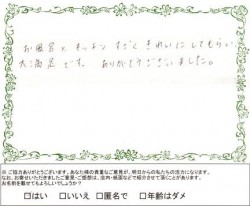 お風呂とキッチン すごくきれいにしてもらい
大満足です。ありがとうございました。
※ ご協力ありがとうございます。あなた様の貴重なご意見が、明日からの私たちの活力になります。
なお、お寄せいただきましたご意見・ご感想は、店内・紙面などで紹介させて頂くことがあります。
お名前を載せてもよろしいでしょうか？
□はい □いいえ □匿名で □年齢はダメ